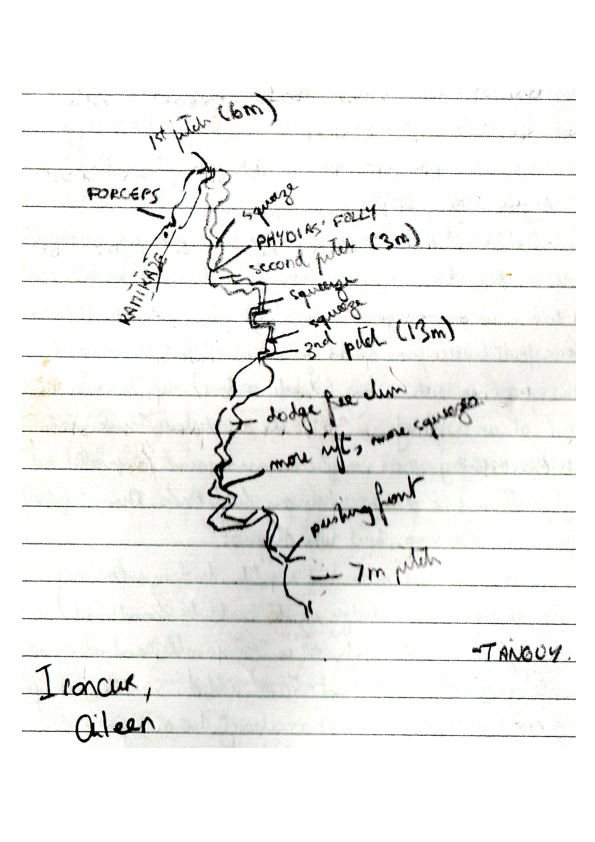 1st pitch (6m)
FORCEPS
squeeze
PHYDIAS' FOLLY
second pitch (3m)
KAMIKAZE
squeeze
squeeze
3rd pitch (13m)
dodge free clim
more rift, more squeezes
pushing front
7m pitch
-TANGUY.
Oileen